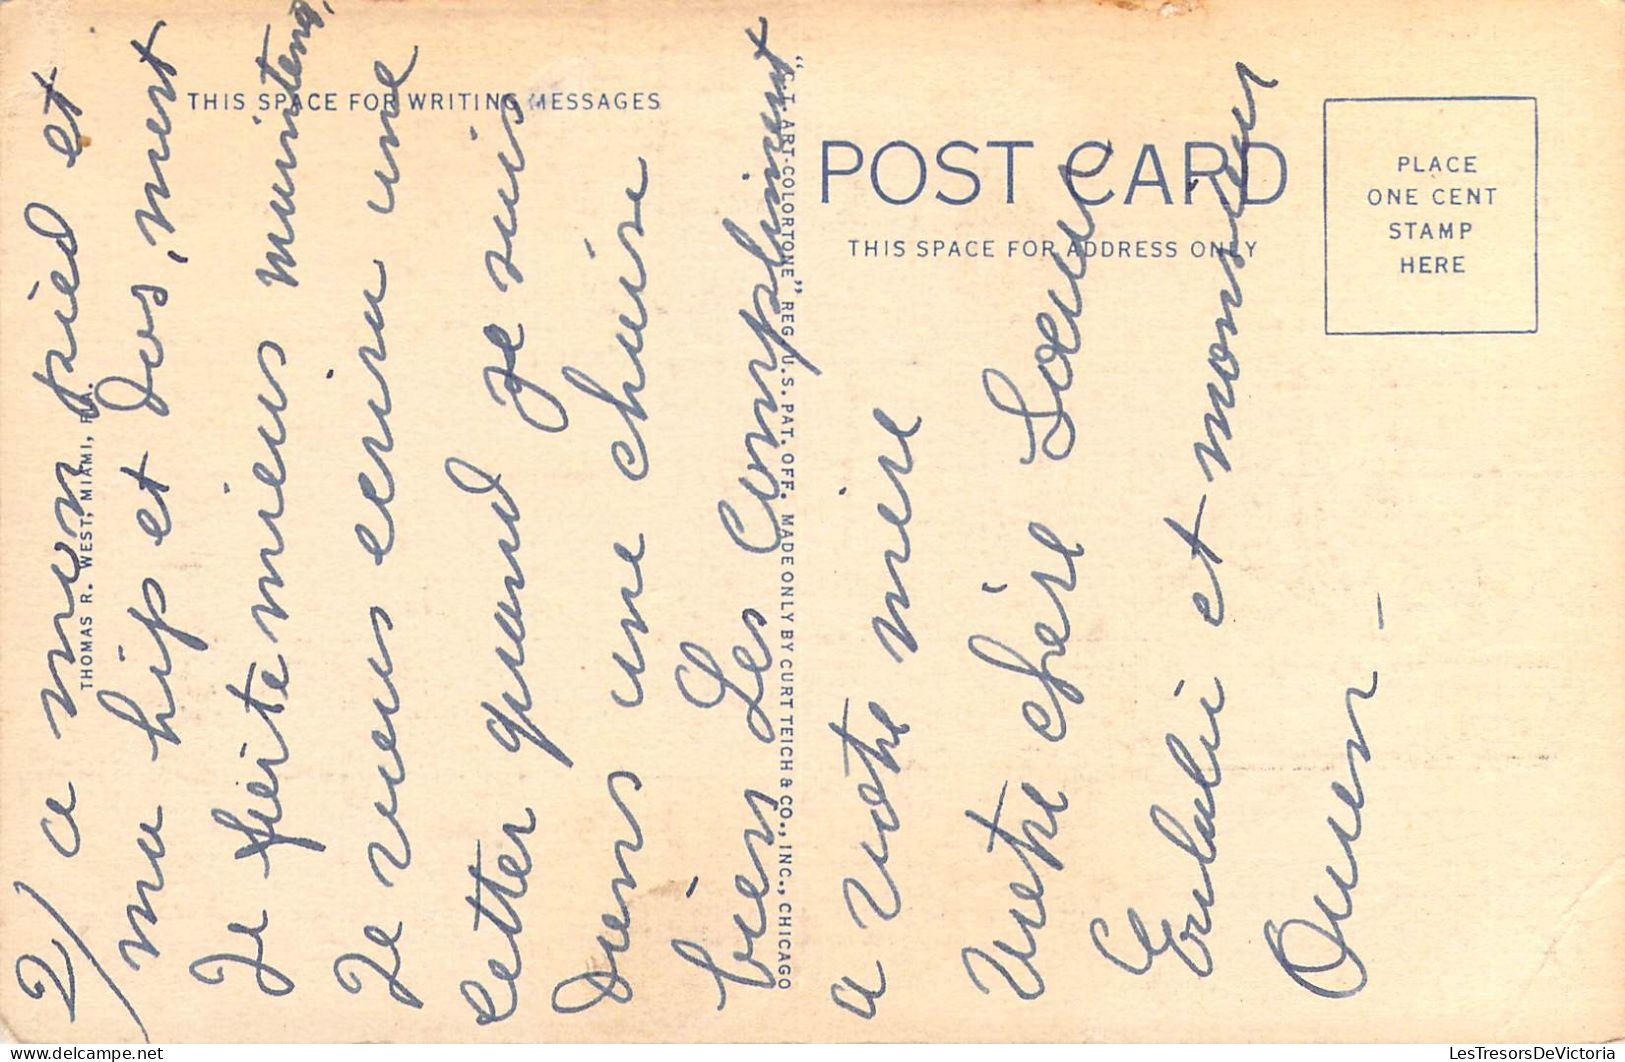 THIS SPACE FOR WRITING MESSAGES
POST CARD
THIS SPACE FOR ADDRESS ONLY
PLACE
ONE CENT
STAMP
HERE
THOMAS R. WEST, MIAMI, FLA.
"C.T. ART-COLORTONE" REG. U.S. PAT. OFF. MADE ONLY BY CURT TEICH & CO., INC., CHICAGO
2/ a mon pied et
ma hip et dos, mert
Je feite mieus maintenant,
Je veus ecriu une
letter quand je suis
Dens une chaise
bien Les Compliment
a votre mère
Votre chère Soeur
Eulalie et monsieur
Owen –
LesTresorsDeVictoria